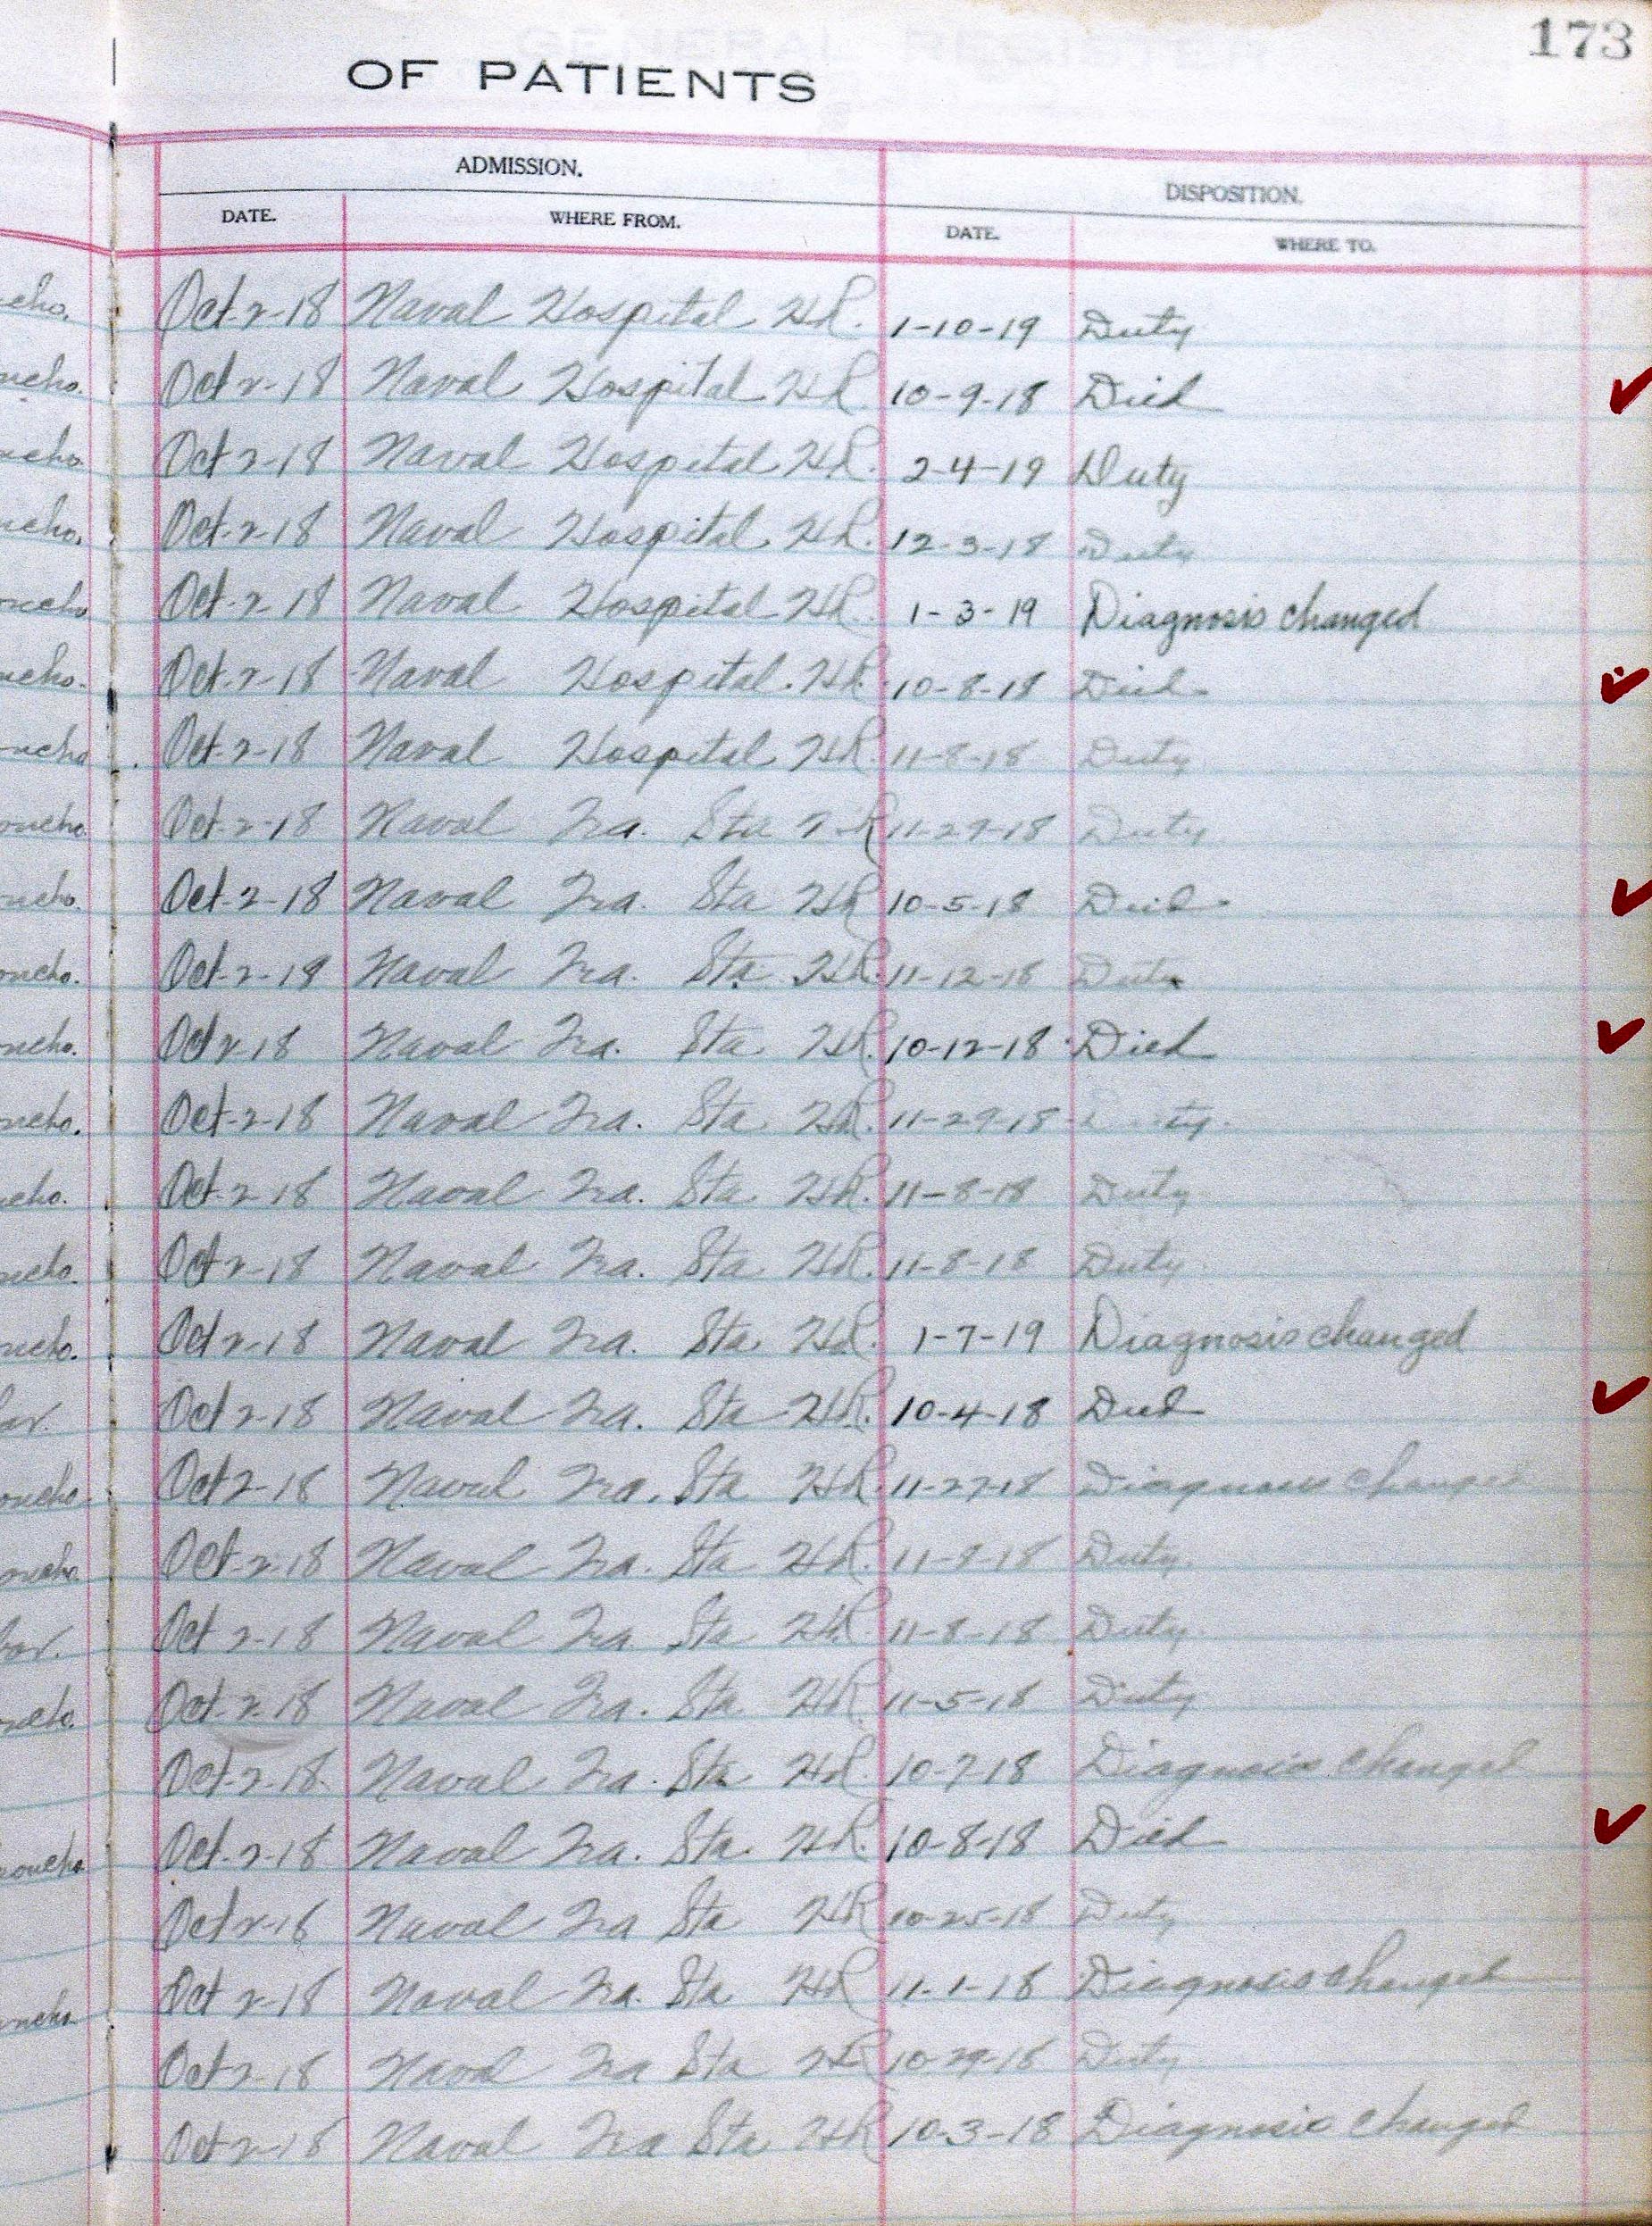 173
OF PATIENTS
ADMISSION. DISPOSITION.
DATE. WHERE FROM. DATE. WHERE TO.
Oct-2-18 Naval Hospital HR. 1-10-19 Duty
Oct 2-18 Naval Hospital HR. 10-9-18 Died
Oct 2-18 Naval Hospital HR. 2-4-19 Duty
Oct-2-18 Naval Hospital HR. 12-3-18 Duty
Oct-2 18 Naval Hospital HR. 1-3-19 Diagnosis changed
Oct-2-18 Naval Hospital. HR. 10-8-18 Died
Oct-2-18 Naval Hospital HR. 11-8-18 Duty
Oct-2-18 Naval Tra. Sta HR 11-29-18 Duty
Oct-2-18 Naval Tra. Sta HR 10-5-18 Died
Oct-2-18 Naval Tra. Sta. HR. 11-12-18 Duty
Oct 2-18 Naval Tra. Sta HR. 10-12-18 Died
Oct-2-18 Naval Tra. Sta HR. 11-29-18 Duty.
Oct-2-18 Naval Tra. Sta HR. 11-8-18 Duty
Oct 2-18 Naval Tra. Sta HR. 11-8-18 Duty
Oct 2-18 Naval Tra. Sta HR. 1-7-19 Diagnosis changed
Oct 2-18 Naval Tra. Sta HR. 10-4-18 Died
Oct 2-18 Naval Tra. Sta HR. 11-27-18 Diagnosis changed
Oct-2-18 Naval Tra. Sta HR. 11-8-18 Duty.
Oct 2-18 Naval Tra Sta HR 11-8-18 Duty
Oct-2-18 Naval Tra. Sta. HR 11-5-18 Duty
Oct-2-18. Naval Tra. Sta HR. 10-7-18 Diagnosis changed
Oct-2-18 Naval Tra. Sta. HR. 10-8-18 Died
Oct 2-18 Naval Tra Sta HR 10-25-18 Duty
Oct 2-18 Naval Tra. Sta HR 11-1-18 Diagnosis changed
Oct 2-18 Naval Tra Sta HR 10-29-18 Duty
Oct 2-18 Naval Tra Sta HR 10-3-18 Diagnosis changed